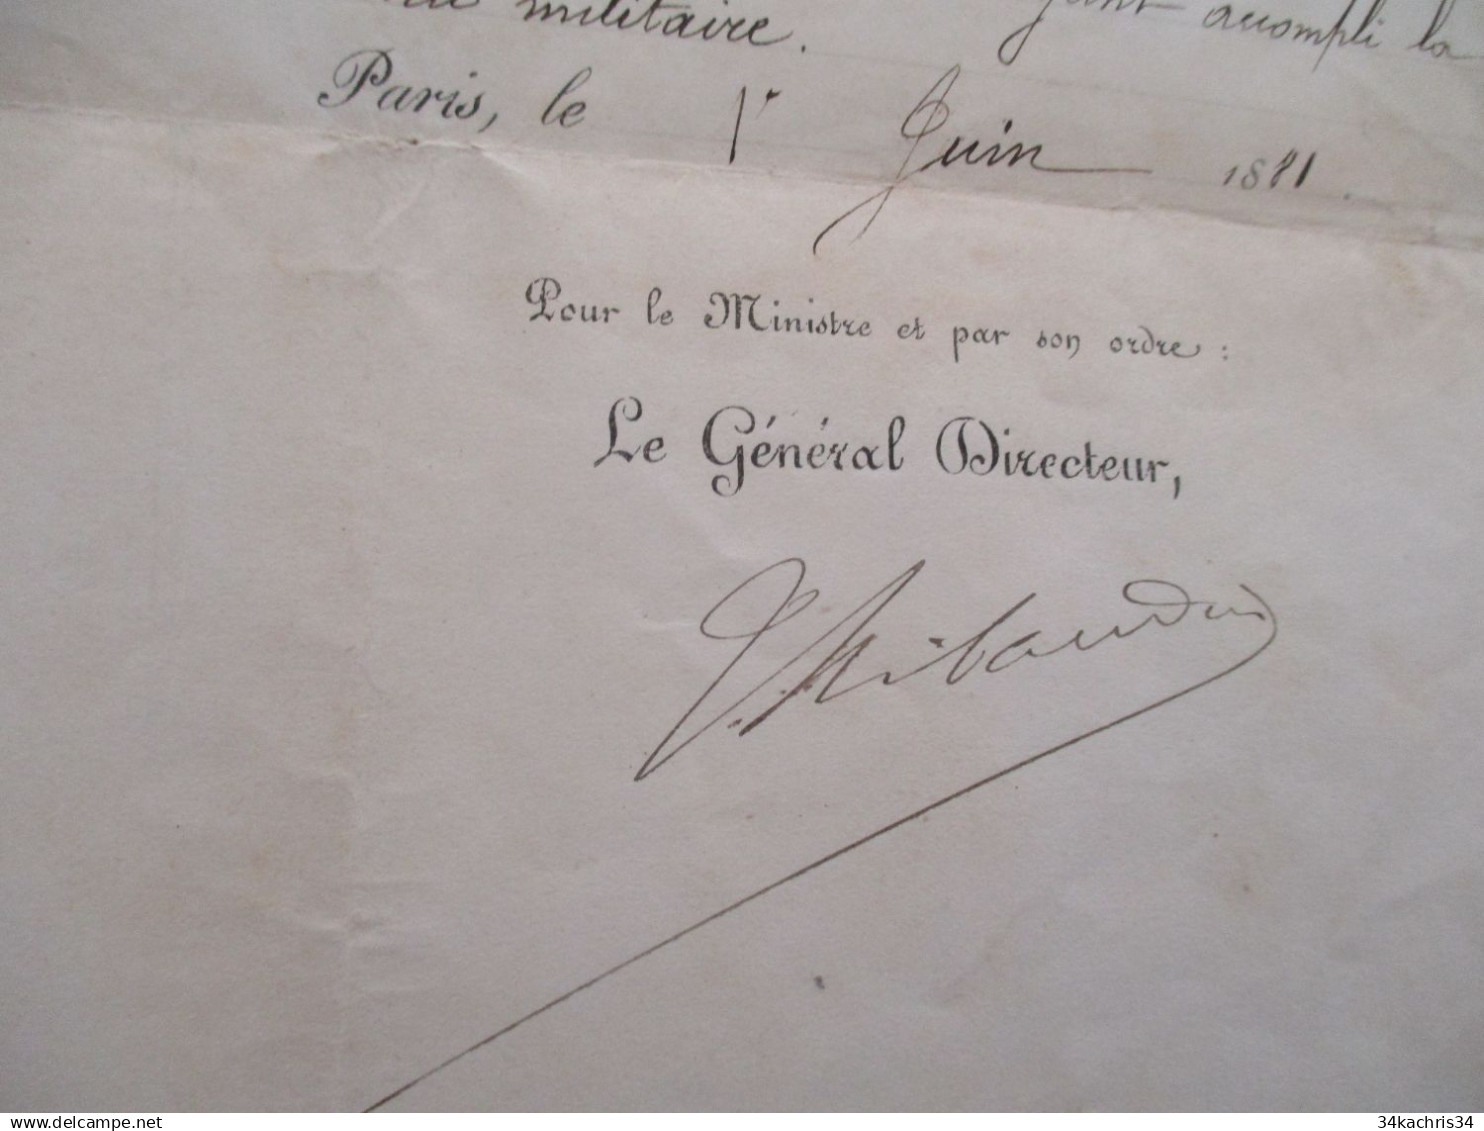 militaire. ayant accompli la
Paris, le 1er Juin 1881.
Pour le Ministre et par son ordre :
Le Général Directeur,
Thibaudin
delcampe.net
34kachris34